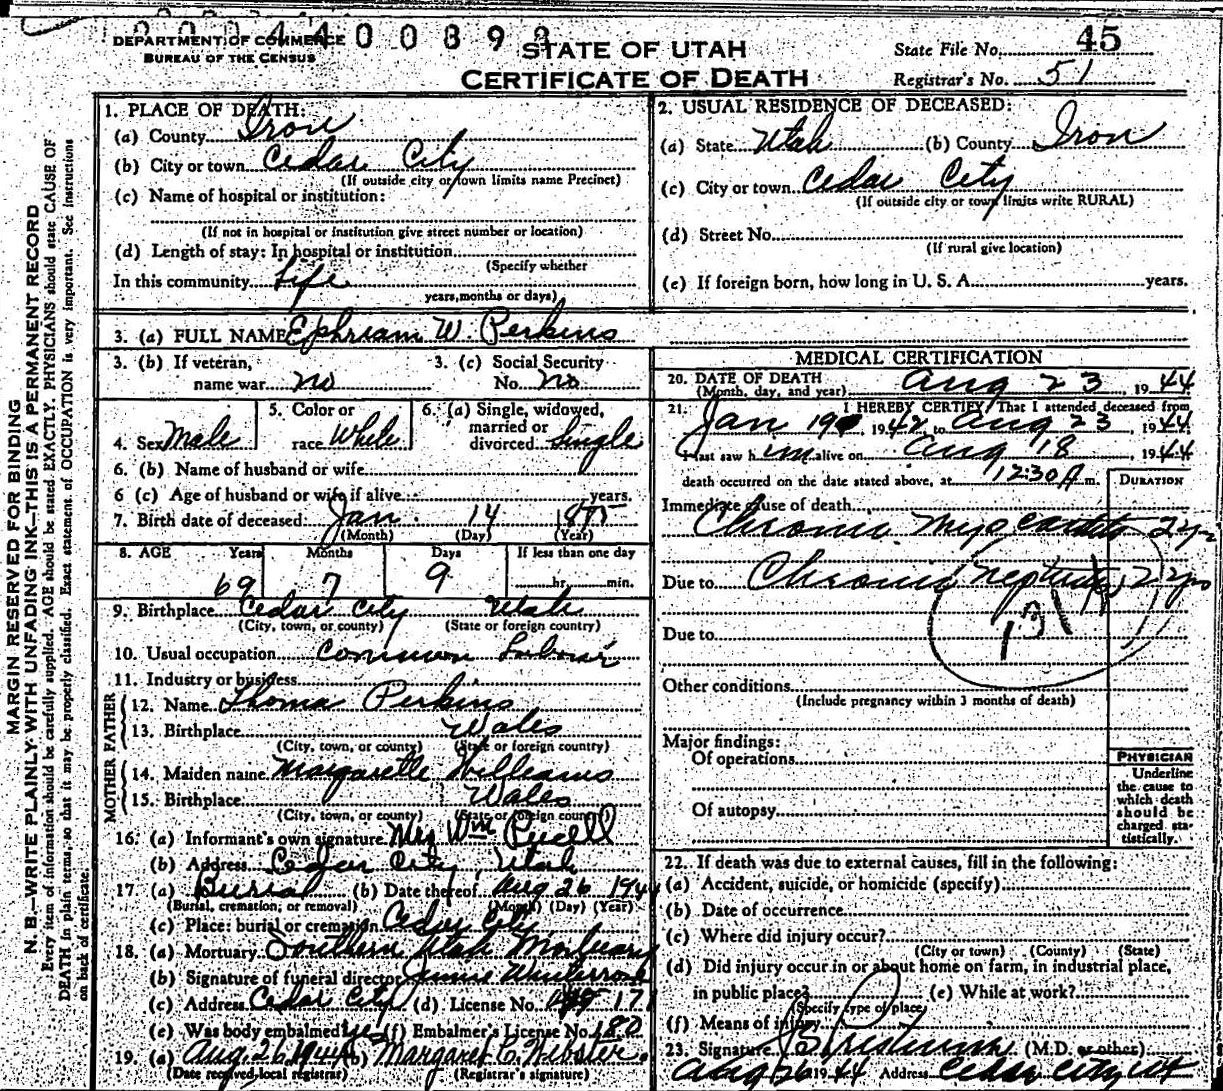 DEPARTMENT OF COMMERCE
BUREAU OF THE CENSUS
STATE OF UTAH
CERTIFICATE OF DEATH
State File No. 45
Registrar's No. 51
MARGIN RESERVED FOR BINDING
N. B.—WRITE PLAINLY WITH UNFADING INK—THIS IS A PERMANENT RECORD
Every item of information should be carefully supplied. AGE should be stated EXACTLY. PHYSICIANS should state CAUSE OF
DEATH in plain terms, so that it may be properly classified. Exact statement of OCCUPATION is very important. See instructions
on back of certificate.
1. PLACE OF DEATH:
(a) County Iron
(b) City or town Cedar City
(If outside city or town limits name Precinct)
(c) Name of hospital or institution:
(If not in hospital or institution give street number or location)
(d) Length of stay: In hospital or institution
(Specify whether
In this community Life
years, months or days)
2. USUAL RESIDENCE OF DECEASED:
(a) State Utah (b) County Iron
(c) City or town Cedar City
(If outside city or town limits write RURAL)
(d) Street No.
(If rural give location)
(e) If foreign born, how long in U. S. A. years.
3. (a) FULL NAME Ephriam W. Perkins
3. (b) If veteran, name war no
3. (c) Social Security No. no
4. Sex Male
5. Color or race White
6. (a) Single, widowed, married or divorced Single
6. (b) Name of husband or wife
6 (c) Age of husband or wife if alive years.
7. Birth date of deceased: Jan. 14 1875
(Month) (Day) (Year)
8. AGE Years Months Days If less than one day
69 7 9 hr. min.
9. Birthplace Cedar City Utah
(City, town, or county) (State or foreign country)
10. Usual occupation Common Laborer
11. Industry or business
FATHER
12. Name Thoma Perkins
13. Birthplace Wales
(City, town, or county) (State or foreign country)
MOTHER
14. Maiden name Margarette Williams
15. Birthplace Wales
(City, town, or county) (State or foreign country)
16. (a) Informant's own signature Mrs Wm
(b) Address Cedar City, Utah
17. (a) Burial (b) Date thereof Aug 26 1944
(Burial, cremation, or removal) (Month) (Day) (Year)
(c) Place: burial or cremation Cedar City
18. (a) Mortuary Southern Utah Mortuary
(b) Signature of funeral director
(c) Address Cedar City (d) License No. 171
(e) Was body embalmed yes (f) Embalmer's License No. 180
19. (a) Aug. 26, 1944 (b) Margaret C. Webster.
(Date received local registrar) (Registrar's signature)
MEDICAL CERTIFICATION
20. DATE OF DEATH Aug 23, 1944
(Month, day, and year)
21. I HEREBY CERTIFY, That I attended deceased from
Jan 1942 to Aug 23, 1944
I last saw him alive on Aug 18, 1944
death occurred on the date stated above, at 12:30 A m.
DURATION
Immediate cause of death
Chronic Myocarditis 2 yrs
Due to Chronic Nephritis 2 yrs
131
Due to
Other conditions
(Include pregnancy within 3 months of death)
Major findings:
Of operations
Of autopsy
PHYSICIAN
Underline
the cause to
which death
should be
charged sta-
tistically.
22. If death was due to external causes, fill in the following:
(a) Accident, suicide, or homicide (specify)
(b) Date of occurrence
(c) Where did injury occur?
(City or town) (County) (State)
(d) Did injury occur in or about home on farm, in industrial place,
in public place? (e) While at work?
(Specify type of place)
(f) Means of injury
23. Signature (M.D. or other)
Aug 26 1944 Address Cedar City Ut